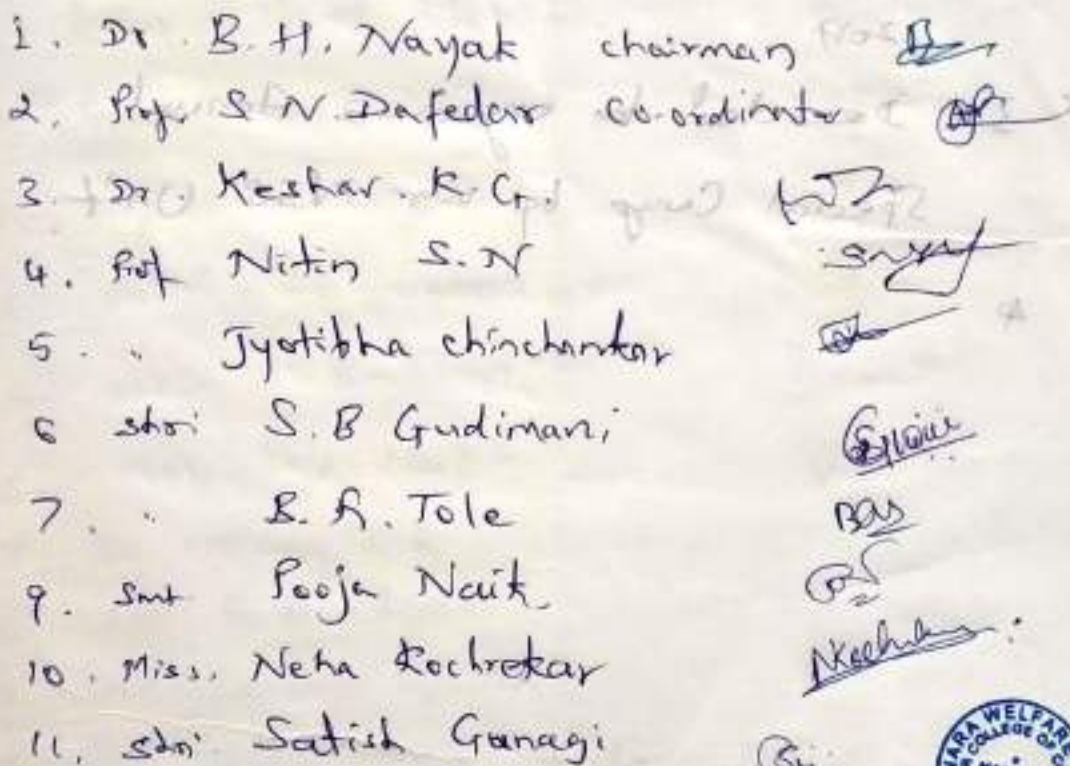 1. Dr. B. H. Nayak chairman
2. Prof. S N. Dafedar Co-ordinator
3. Dr. Keshar. K. G.
4. Prof Nitin S. N
5. " Jyotibha chinchankar
6 shri S. B Gudimani
7. " B. A. Tole
9. Smt Pooja Naik
10. Miss. Neha Kochrekar
11. shri Satish Ganagi
ARA WELFARE
COLLEGE OF